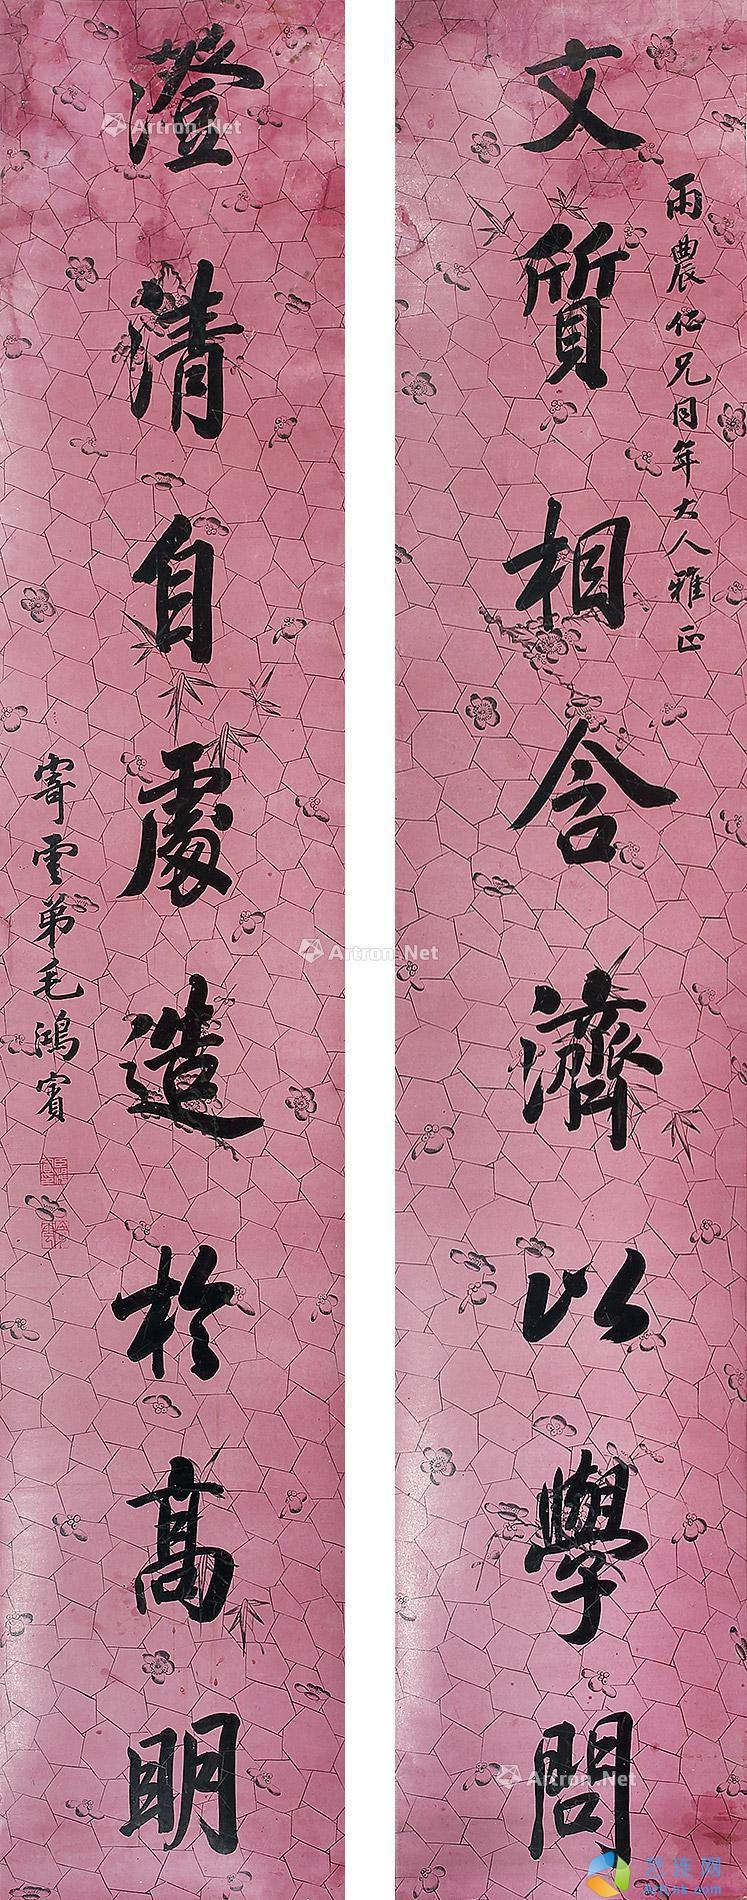 雨農仁兄同年大人雅正
文質相含濟以學問
澄清自處造於高明
寄雲弟毛鴻賓
Artron.Net
Artron.Net
Artron.Net
Artron.Net